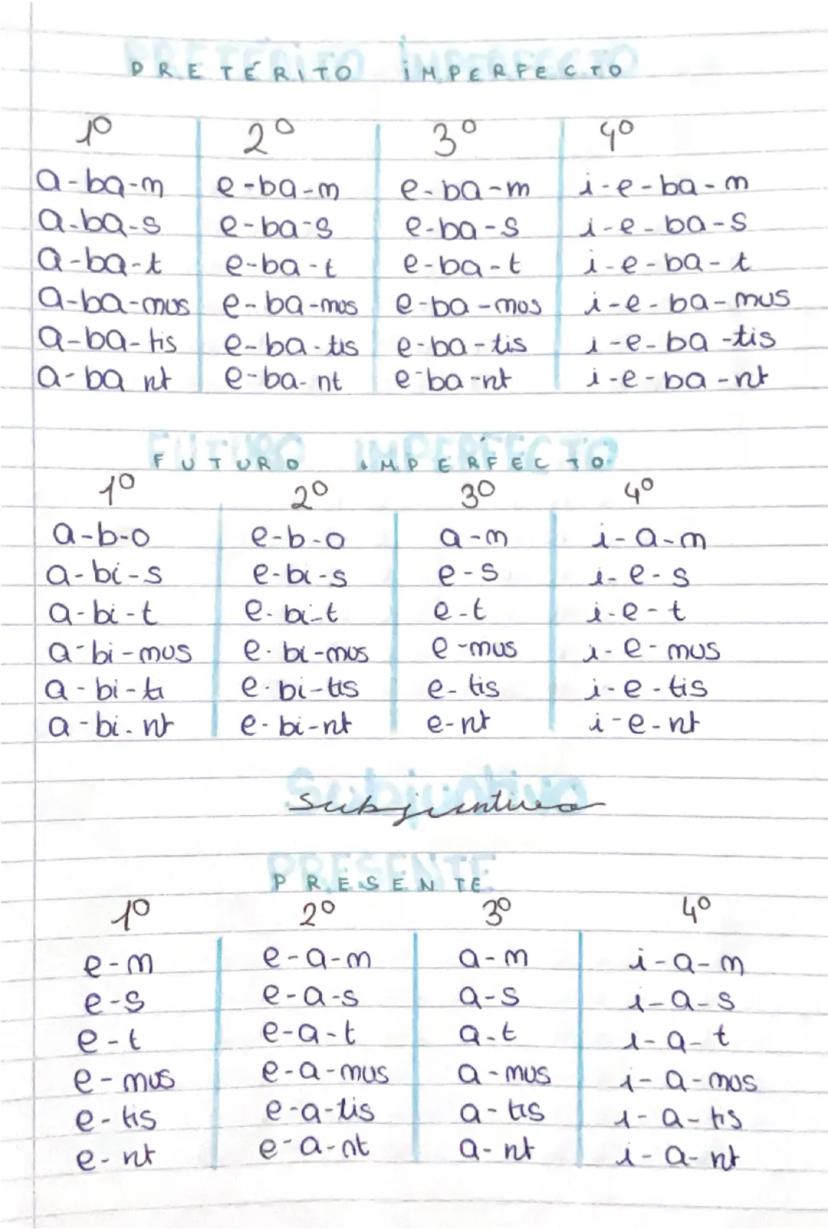 PRETÉRITO IMPERFECTO
1º 2º 3º 4º
a-ba-m e-ba-m e-ba-m i-e-ba-m
a-ba-s e-ba-s e-ba-s i-e-ba-s
a-ba-t e-ba-t e-ba-t i-e-ba-t
a-ba-mus e-ba-mus e-ba-mus i-e-ba-mus
a-ba-tis e-ba-tis e-ba-tis i-e-ba-tis
a-ba nt e-ba-nt e-ba-nt i-e-ba-nt
FUTURO IMPERFECTO
1º 2º 3º 4º
a-b-o e-b-o a-m i-a-m
a-bi-s e-bi-s e-s i-e-s
a-bi-t e-bi-t e-t i-e-t
a-bi-mus e-bi-mus e-mus i-e-mus
a-bi-ti e-bi-tis e-tis i-e-tis
a-bi-nt e-bi-nt e-nt i-e-nt
Subjuntivo
PRESENTE
1º 2º 3º 4º
e-m e-a-m a-m i-a-m
e-s e-a-s a-s i-a-s
e-t e-a-t a-t i-a-t
e-mus e-a-mus a-mus i-a-mus
e-tis e-a-tis a-tis i-a-tis
e-nt e-a-nt a-nt i-a-nt